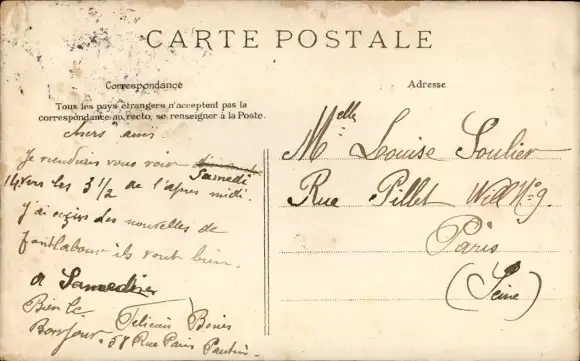 CARTE POSTALE
Correspondance
Adresse
Tous les pays étrangers n'acceptent pas la
correspondance au recto, se renseigner à la Poste.
chers amis
Je viendrais vous voir dimanche
Samedi
14 vers les 3 1/2 de l'apres midi.
J'ai reçus des nouvelles de
ils vont bien.
a Samedi
Bien le
Bonjour. Felicien
58 Rue Paris Pantin.
Melle Louise Soulier
Rue Pillet Will No 9.
Paris
(Seine)